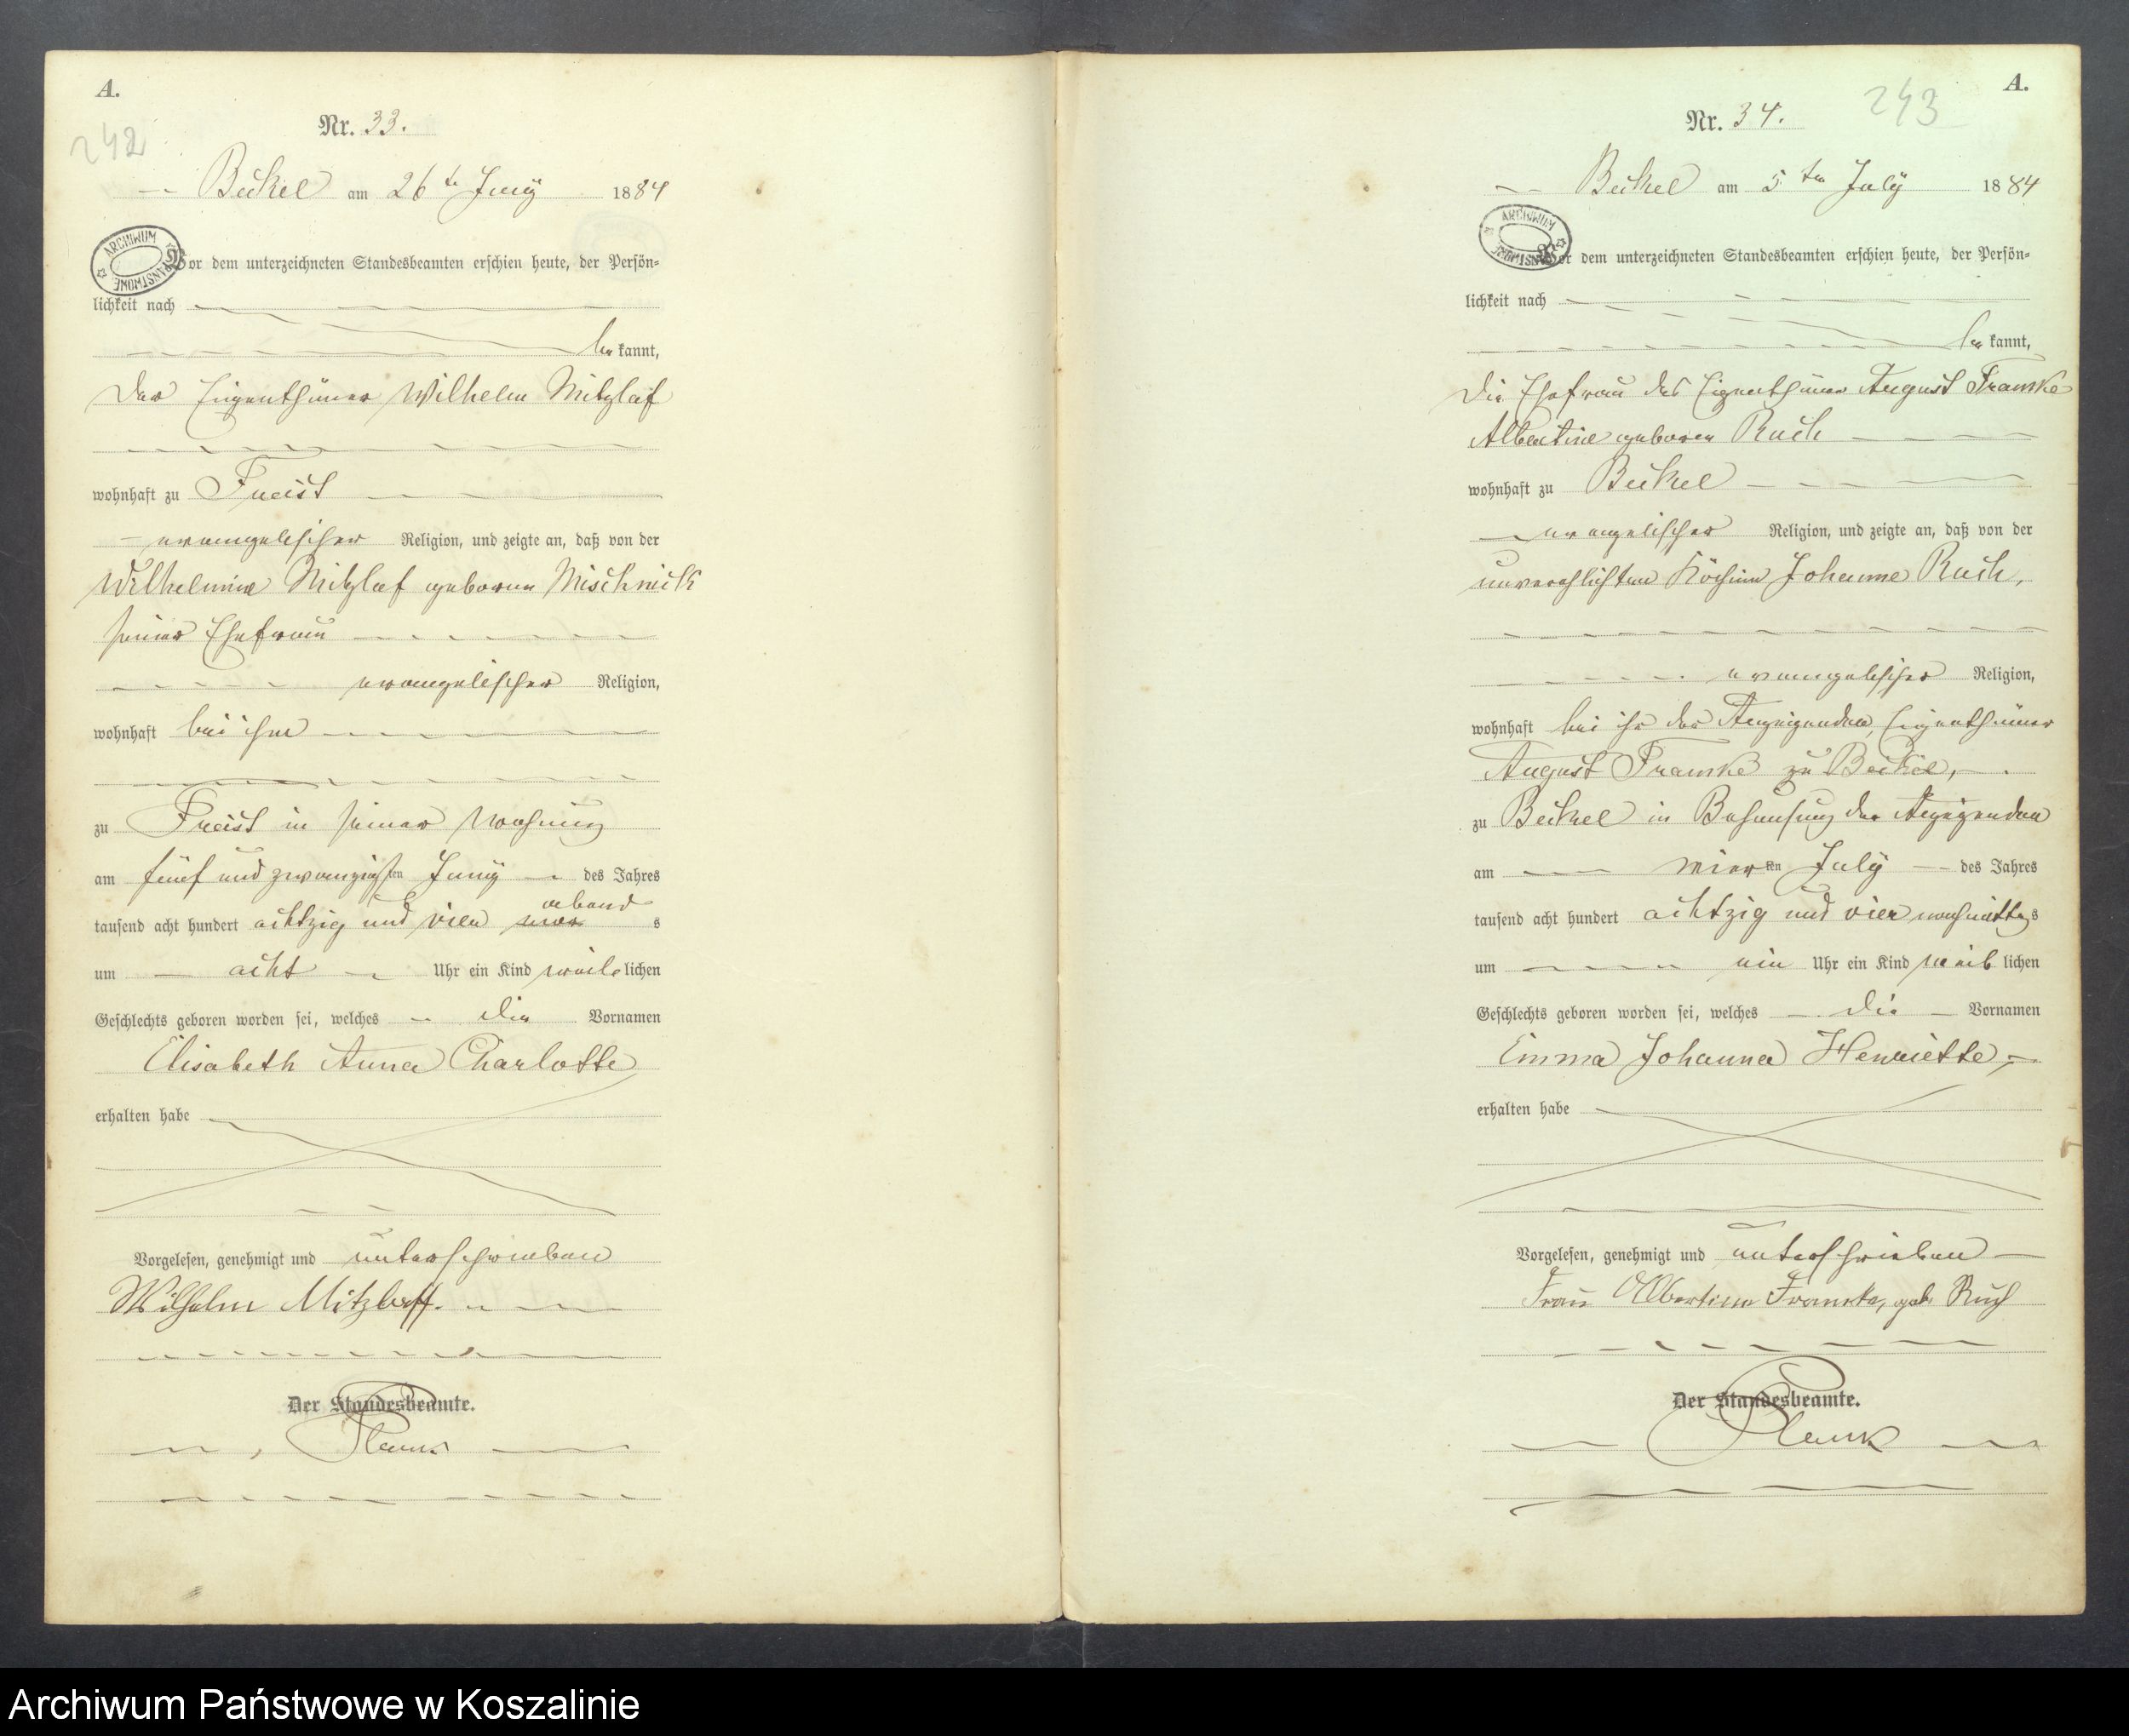 A.
242
Nr. 33.
Beckel am 26ten Juny 1884
ARCHIWUM
PAŃSTWOWE
Vor dem unterzeichneten Standesbeamten erschien heute, der Persön=
lichkeit nach
be kannt,
der Eigenthümer Wilhelm Mitzlaf
wohnhaft zu Freist
evangelischer Religion, und zeigte an, daß von der
Wilhelmine Mitzlaf geboren Mischnick
seiner Ehefrau
evangelischer Religion,
wohnhaft bei ihm
zu Freist in seiner Wohnung
am fünf und zwanzigsten Juny des Jahres
abend
tausend acht hundert achtzig und vier s
um acht Uhr ein Kind weiblichen
Geschlechts geboren worden sei, welches die Vornamen
Elisabeth Anna Charlotte
erhalten habe
Vorgelesen, genehmigt und unterschrieben
Wilhelm Mitzlaff.
Der Standesbeamte.
A.
243
Nr. 34.
Beckel am 5ten July 1884
ARCHIWUM
PAŃSTWOWE
Vor dem unterzeichneten Standesbeamten erschien heute, der Persön=
lichkeit nach
be kannt,
die Ehefrau des Eigenthümer August Franke
Albertine geboren Ruch
wohnhaft zu Beckel
evangelischer Religion, und zeigte an, daß von der
unverehlichten Köchinn Johanne Ruch,
evangelischer Religion,
wohnhaft bei ihr der Anzeigenden, Eigenthümer
August Franke zu Beckel,
zu Beckel in Behausung der Anzeigenden
am vierten July des Jahres
tausend acht hundert achtzig und vier nachmittags
um ein Uhr ein Kind weiblichen
Geschlechts geboren worden sei, welches die Vornamen
Emma Johanna Henriette,
erhalten habe
Vorgelesen, genehmigt und unterschrieben
Frau Albertine Franke, geb. Ruch
Der Standesbeamte.
Archiwum Państwowe w Koszalinie